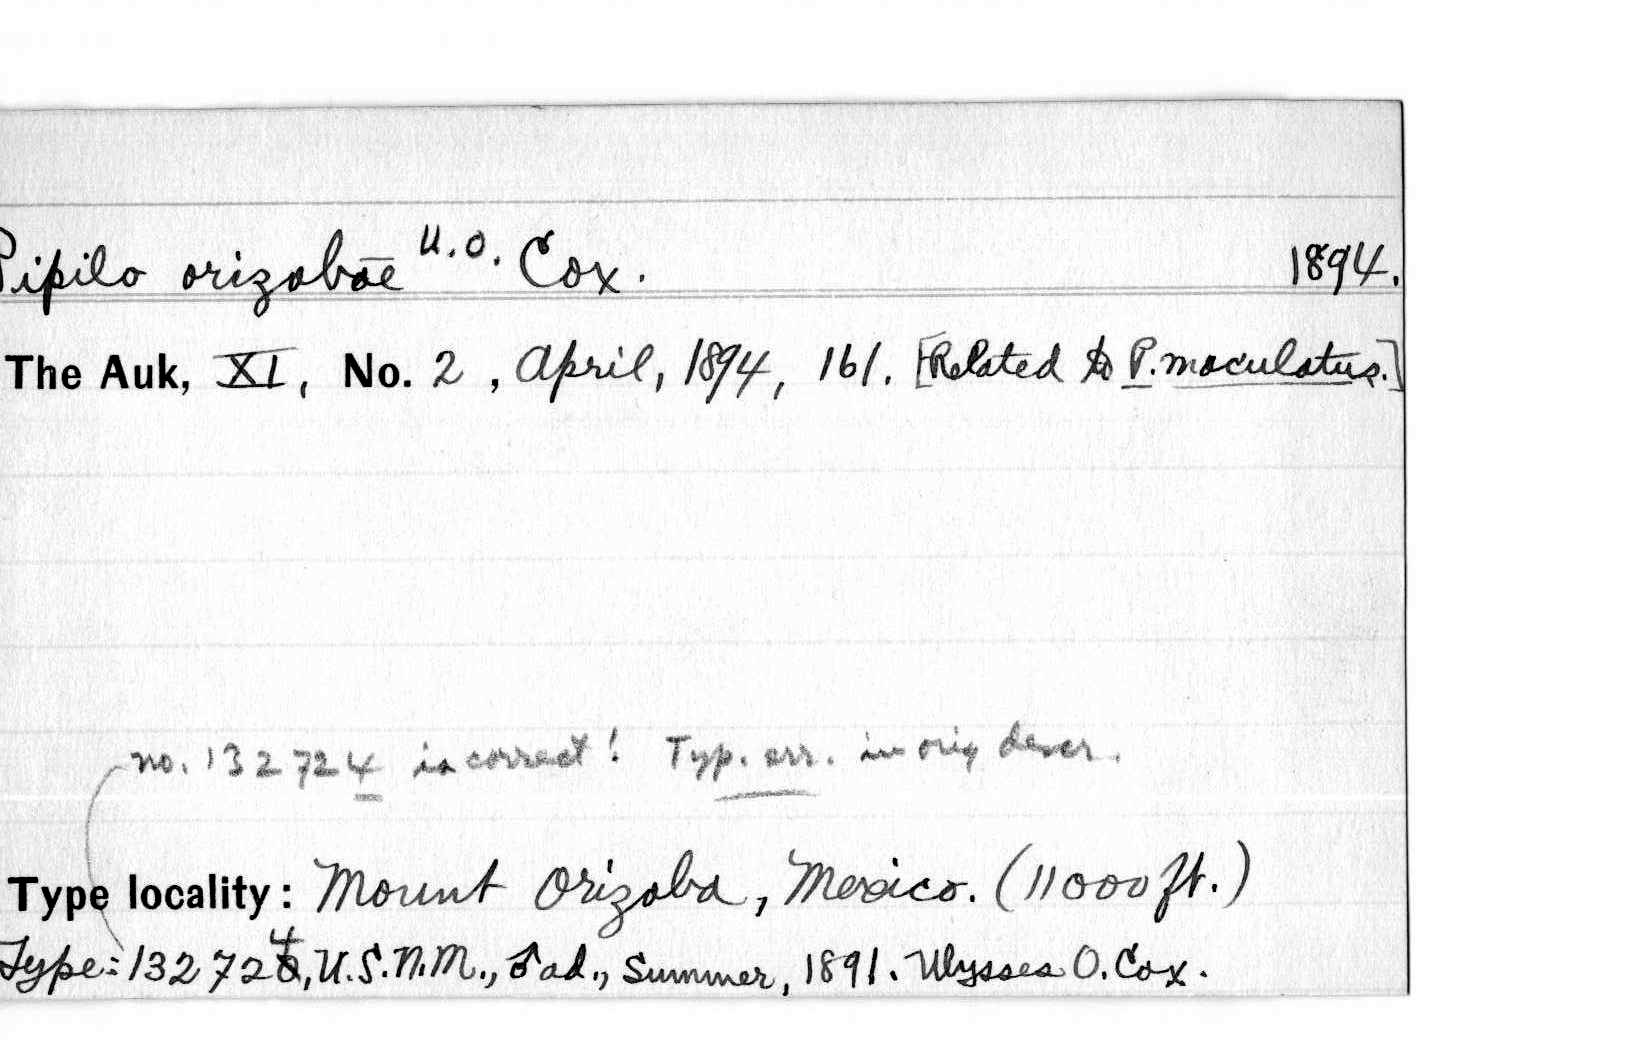 Pipilo orizabae U.O. Cox. 1894.
The Auk, XI, No. 2, April, 1894, 161. [Related to P. maculatus.]
no. 132724 is correct! Typ. err. in orig descr.
Type locality: Mount Orizaba, Mexico. (11000 ft.)
Type: 132724, U.S.N.M., ♂ ad., Summer, 1891. Ulysses O. Cox.